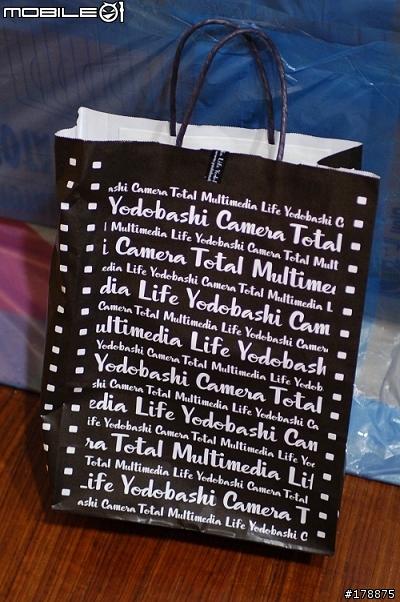 MOBILE01
ashi Camera Total Multimedia Life Yodobashi C
Yodobashi Camera Total
bashi Camera Total Multimedia Life Yodobashi Camera Total Mult
i Camera Total Multimed
edia Life Yodobashi Camera Total Multimedia L
dia Life Yodobashi Cam
Camera Total Multimedia Life Yodobashi Camer
ultimedia Life Yodobash
odobashi Camera Total Multimedia Life Yodob
Yodobashi Camera Total
ashi Camera Total Multimedia Life Yodobashi Ca
edia Life Yodobashi Cam
ife Yodobashi Camera Total Multimedia Life Yo
ra Total Multimedia Lif
Total Multimedia Life Yodobashi Camera Total
Life Yodobashi Camera T
ashi Camera Total Multimedia Life Yodobashi C
#178875